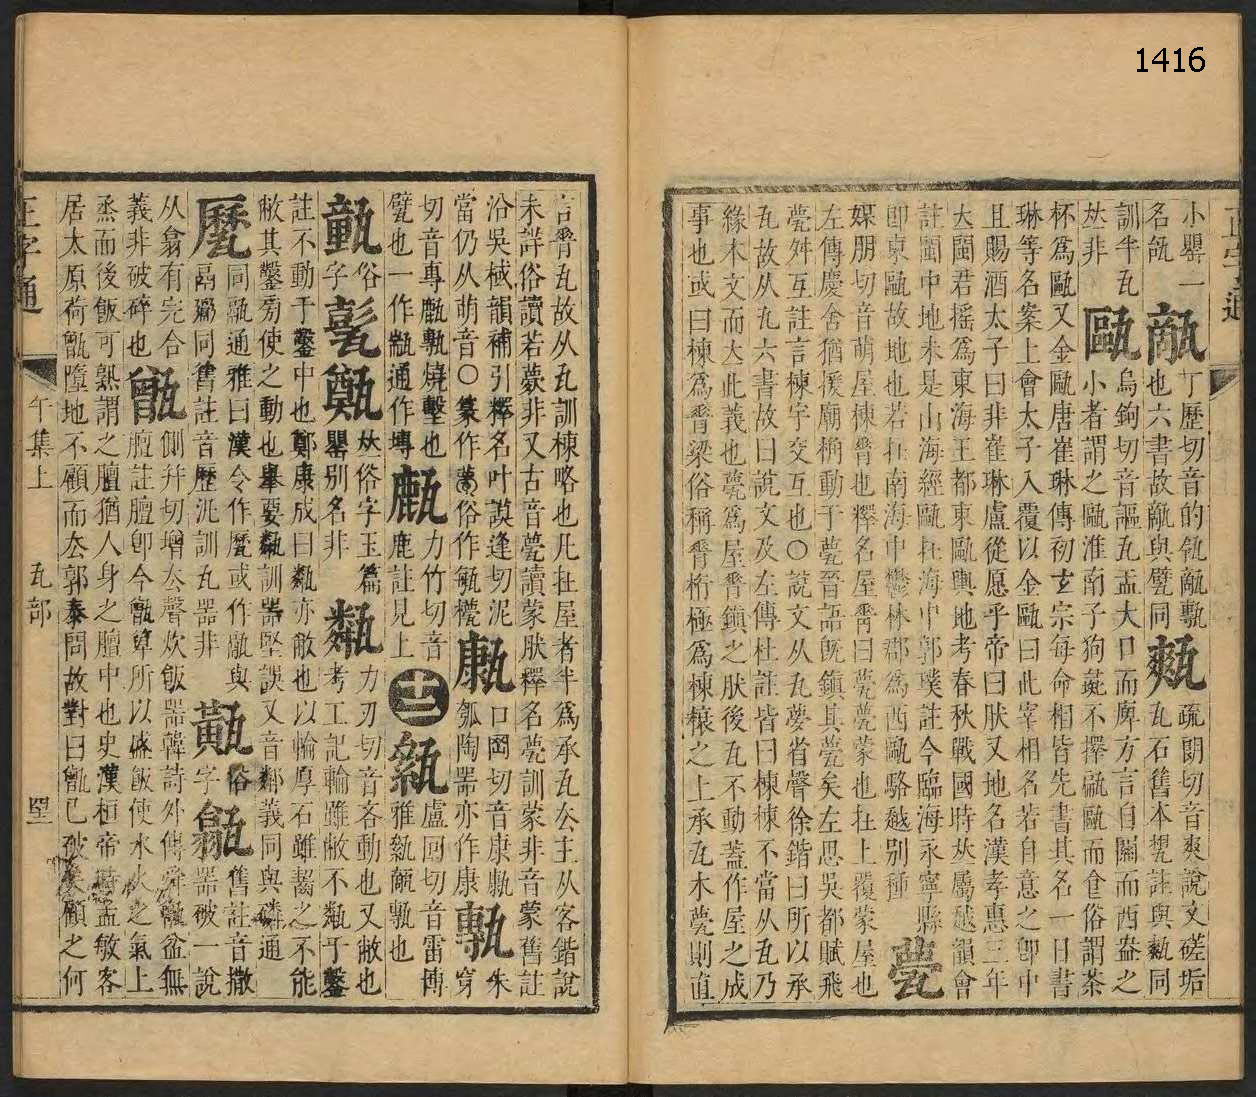 1416
正字通
小罌一
名瓵 㼣 丁歷切音的瓴㼣甎 㼽 疏朗切音爽說文磋垢
訓半瓦也六書故㼣與甓同 瓦石舊本㼽註與㼽同
𠀤非 甌 烏鉤切音謳瓦盂大口而庳方言自關而西盎之
小者謂之甌淮南子狗彘不擇甂甌而食俗謂茶
杯爲甌又金甌唐崔琳傳初玄宗每命相皆先書其名一日書
琳等名案上會太子入覆以金甌曰此宰相名若自意之卽中
且賜酒太子曰非崔琳盧從愿乎帝曰肰又地名漢孝惠三年
立閩君搖爲東海王都東甌輿地考春秋戰國時𠀤屬越韻會
註閩中地未是山海經甌在海中郭璞註今臨海永寧縣
卽東甌故地也若在南海中鬱林郡爲西甌駱越別種 甍
媒朋切音萌屋棟脊也釋名屋脊曰甍甍蒙也在上覆蒙屋也
左傳慶舍猶援廟桷動于甍晉語旣鎮其甍矣左思吳都賦飛
甍舛互註言棟字交互也○說文从瓦夢省聲徐鍇曰所以承
瓦故从瓦六書故曰說文及左傳杜註皆曰棟棟不當从瓦乃
緣本文而大此義也甍爲屋脊鎮之肰後瓦不動蓋作屋之成
事也或曰棟爲脊梁俗稱脊桁極爲棟榱之上承瓦木甍則直
言脊瓦故从瓦訓棟略也凡在屋者半爲承瓦公主从客鍇說
未詳俗讀若蒙非又古音甍讀蒙肰釋名甍訓蒙非音蒙舊註
沿吳棫韻補引釋名叶謨逢切泥
當仍从萌音○篆作甍俗作㼹㼹 㼹 口岡切音康甈
瓠陶器亦作康 甎 朱
穿
切音專甗甎燒墼也
甓也一作甎通作塼 㼾 力竹切音
鹿註見上 十二 㽍 盧回切音雷博
雅㽍㼾甎也
㼿 俗
字 㽀 鄭瓦 𠀤俗字玉篇
罌別名非 甐 力刃切音吝動也又敝也
考工記輪雖敝不甐于鑿
註不動于鑿中也鄭康成曰甐亦敝也以輪厚石雖齧之不能
敝其鑿旁使之動也舉要甐訓器堅誤又音鄰義同與磷通
㽁 同甗通雅曰漢令作㽁或作甗與
鬲䰛同舊註音歷汎訓瓦器非 㼵 俗
字 㽂 舊註音撒
器破一說
从翕有完合
義非破碎也 甑 側幷切增去聲炊飯器韓詩外傳舜甑盆無
膻註膻卽今甑箄所以盛飯使水火之氣上
烝而後飯可熟謂之膻猶人身之膻中也史漢桓帝時孟敏客
居太原荷甑墮地不顧而去郭泰問故對曰甑已破矣顧之何
正字通
午集上
瓦部